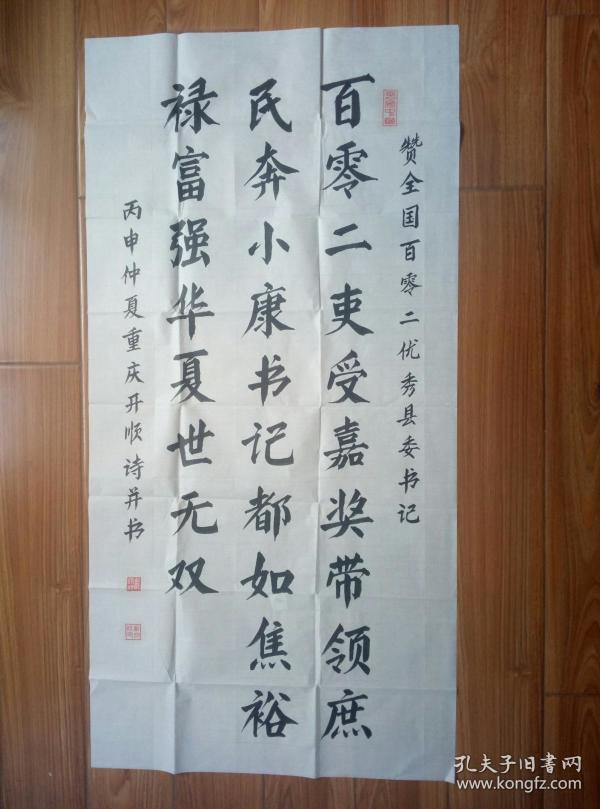 赞全国百零二优秀县委书记
百零二吏受嘉奖带领庶
民奔小康书记都如焦裕
禄富强华夏世无双
丙申仲夏重庆开顺诗并书
孔夫子旧书网
www.kongfz.com